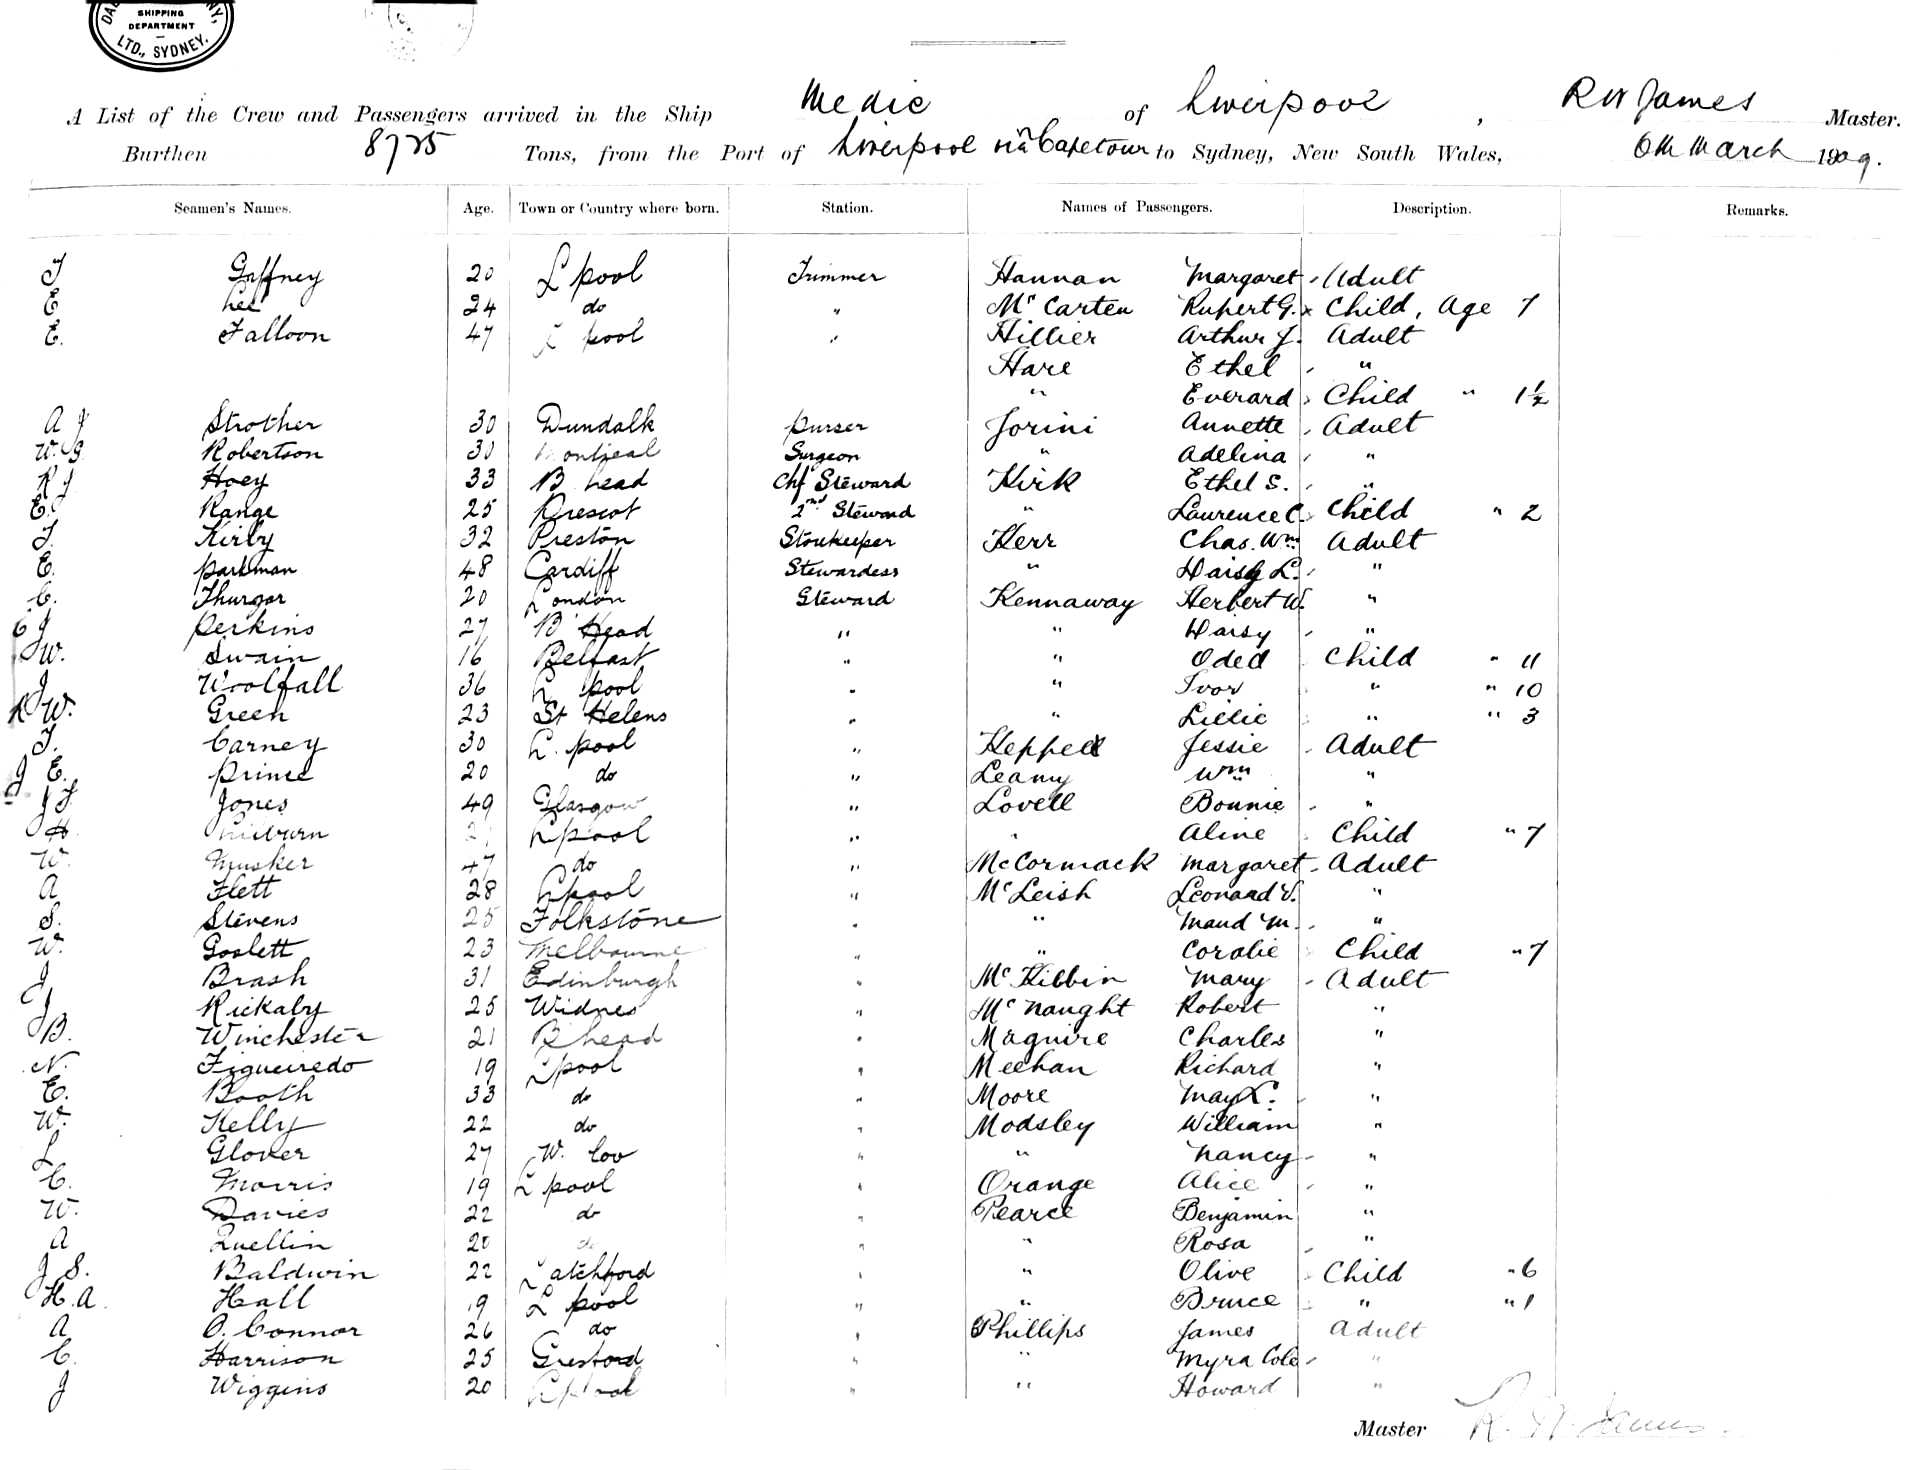 SHIPPING
DEPARTMENT
LTD., SYDNEY.
A List of the Crew and Passengers arrived in the Ship Medic of Liverpool, RW James Master.
Burthen 8725 Tons, from the Port of Liverpool via Capetown to Sydney, New South Wales, 6th March 1909.
Seamen's Names. Age. Town or Country where born. Station. Names of Passengers. Description. Remarks.
T Gaffney 20 L'pool Trimmer Hannan Margaret Adult
E Lee 24 do " McCarten Rupert G. x Child, Age 7
E. Falloon 47 L'pool " Hillier Arthur J. Adult
Hare Ethel "
" Everard Child " 1½
A J Strother 30 Dundalk Purser Jorini Annette Adult
W. G Robertson 30 Montreal Surgeon " Adelina "
R J Hoey 33 B'head Chf Steward Kirk Ethel S. "
E. Range 25 Prescot 2nd Steward " Laurence C. Child " 2
T. Kirby 32 Preston Storekeeper Kerr Chas. Wm Adult
E. Parkman 48 Cardiff Stewardess " Daisy L. "
C. Thurgar 20 London Steward Kennaway Herbert W. "
C J Perkins 27 B'Head " " Daisy "
J W. Swain 16 Belfast " " Oded Child " 11
J Woolfall 36 L'pool " " Ivor " " 10
R W. Green 23 St Helens " " Lillie " " 3
T. Carney 30 L'pool " Heppell Jessie Adult
J E. Prince 20 do " Leamy Wm "
J T. Jones 49 Glasgow " Lovell Bonnie "
H. L'pool " " Aline Child " 7
W. Musker 47 do " McCormack Margaret Adult
A Flett 28 L'pool " McLeish Leonard S. "
S. Stevens 25 Folkstone " " Maud M. "
W. Goslett 23 Melbourne " " Coralie Child " 7
J Brash 31 Edinburgh " McKibbin Mary Adult
J Rickaby 25 Widnes " McNaught Robert "
B. Winchester 21 B'head " Maguire Charles "
N. Figueiredo 19 L'pool " Meehan Richard "
E. Booth 33 do " Moore May L. "
W. Kelly 22 do " Modsley William "
L Glover 27 W. " " Nancy "
C. Morris 19 L'pool " Orange Alice "
W. Davies 22 do " Pearce Benjamin "
A Quellin 20 do " " Rosa "
J S. Baldwin 22 Latchford " " Olive Child " 6
H. A. Hall 19 L'pool " " Bruce " " 1
A O'Connor 26 do " Phillips James Adult
C. Harrison 25 Gresford " " Myra Cole "
J Wiggins 20 L'pool " " Howard "
Master R. W. James.